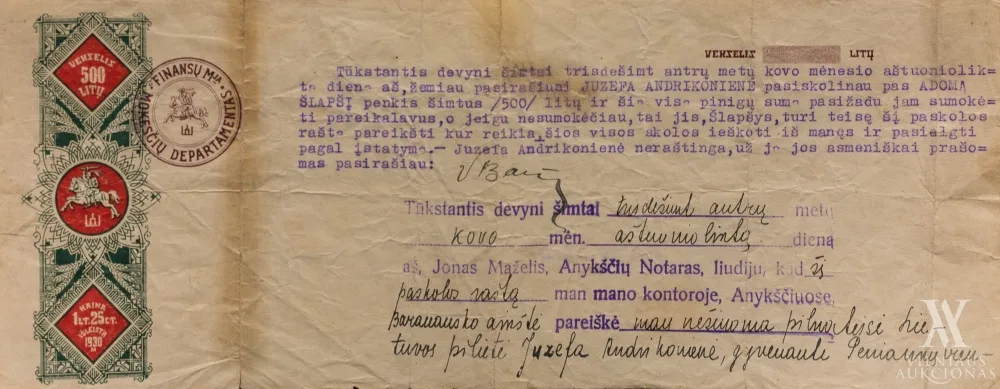 VEKSELIS
500
LITŲ
FINANSŲ M-JA
MOKESČIŲ DEPARTAMENTAS
VEKSELIS LITŲ
Tūkstantis devyni šimtai trisdešimt antrų metų kovo mėnesio aštuoniolik=
ta diena aš, žemiau pasirašiusi JUZEFA ANDRIKONIENĖ pasiskolinau pas ADOMĄ
ŠLAPŠĮ penkis šimtus /500/ litų ir šią visą pinigų sumą pasižadu jam sumokė=
ti pareikalavus, o jeigu nesumokėčiau, tai jis, Šlapšys, turi teisę šį paskolos
raštą pareikšti kur reikia, šios visos skolos ieškoti iš manęs ir pasielgti
pagal įstatymą.- Juzefa Andrikonienė neraštinga, už ją jos asmeniškai prašo=
mas pasirašiau:
Tūkstantis devyni šimtai trisdešimt antrų metų
kovo mėn. aštuonioliktą dieną
aš, Jonas Maželis, Anykščių Notaras, liudiju, kad šį
paskolos raštą man mano kontoroje, Anykščiuose,
Baranausko aikštė pareiškė man nežinoma pilnateisė Lie-
tuvos pilietė Juzefa Andrikonienė, gyvenanti
KAINA
1 LT. 25 CT.
IŠLEISTA
1930
M
VILNIAUS
AUKCIONAS